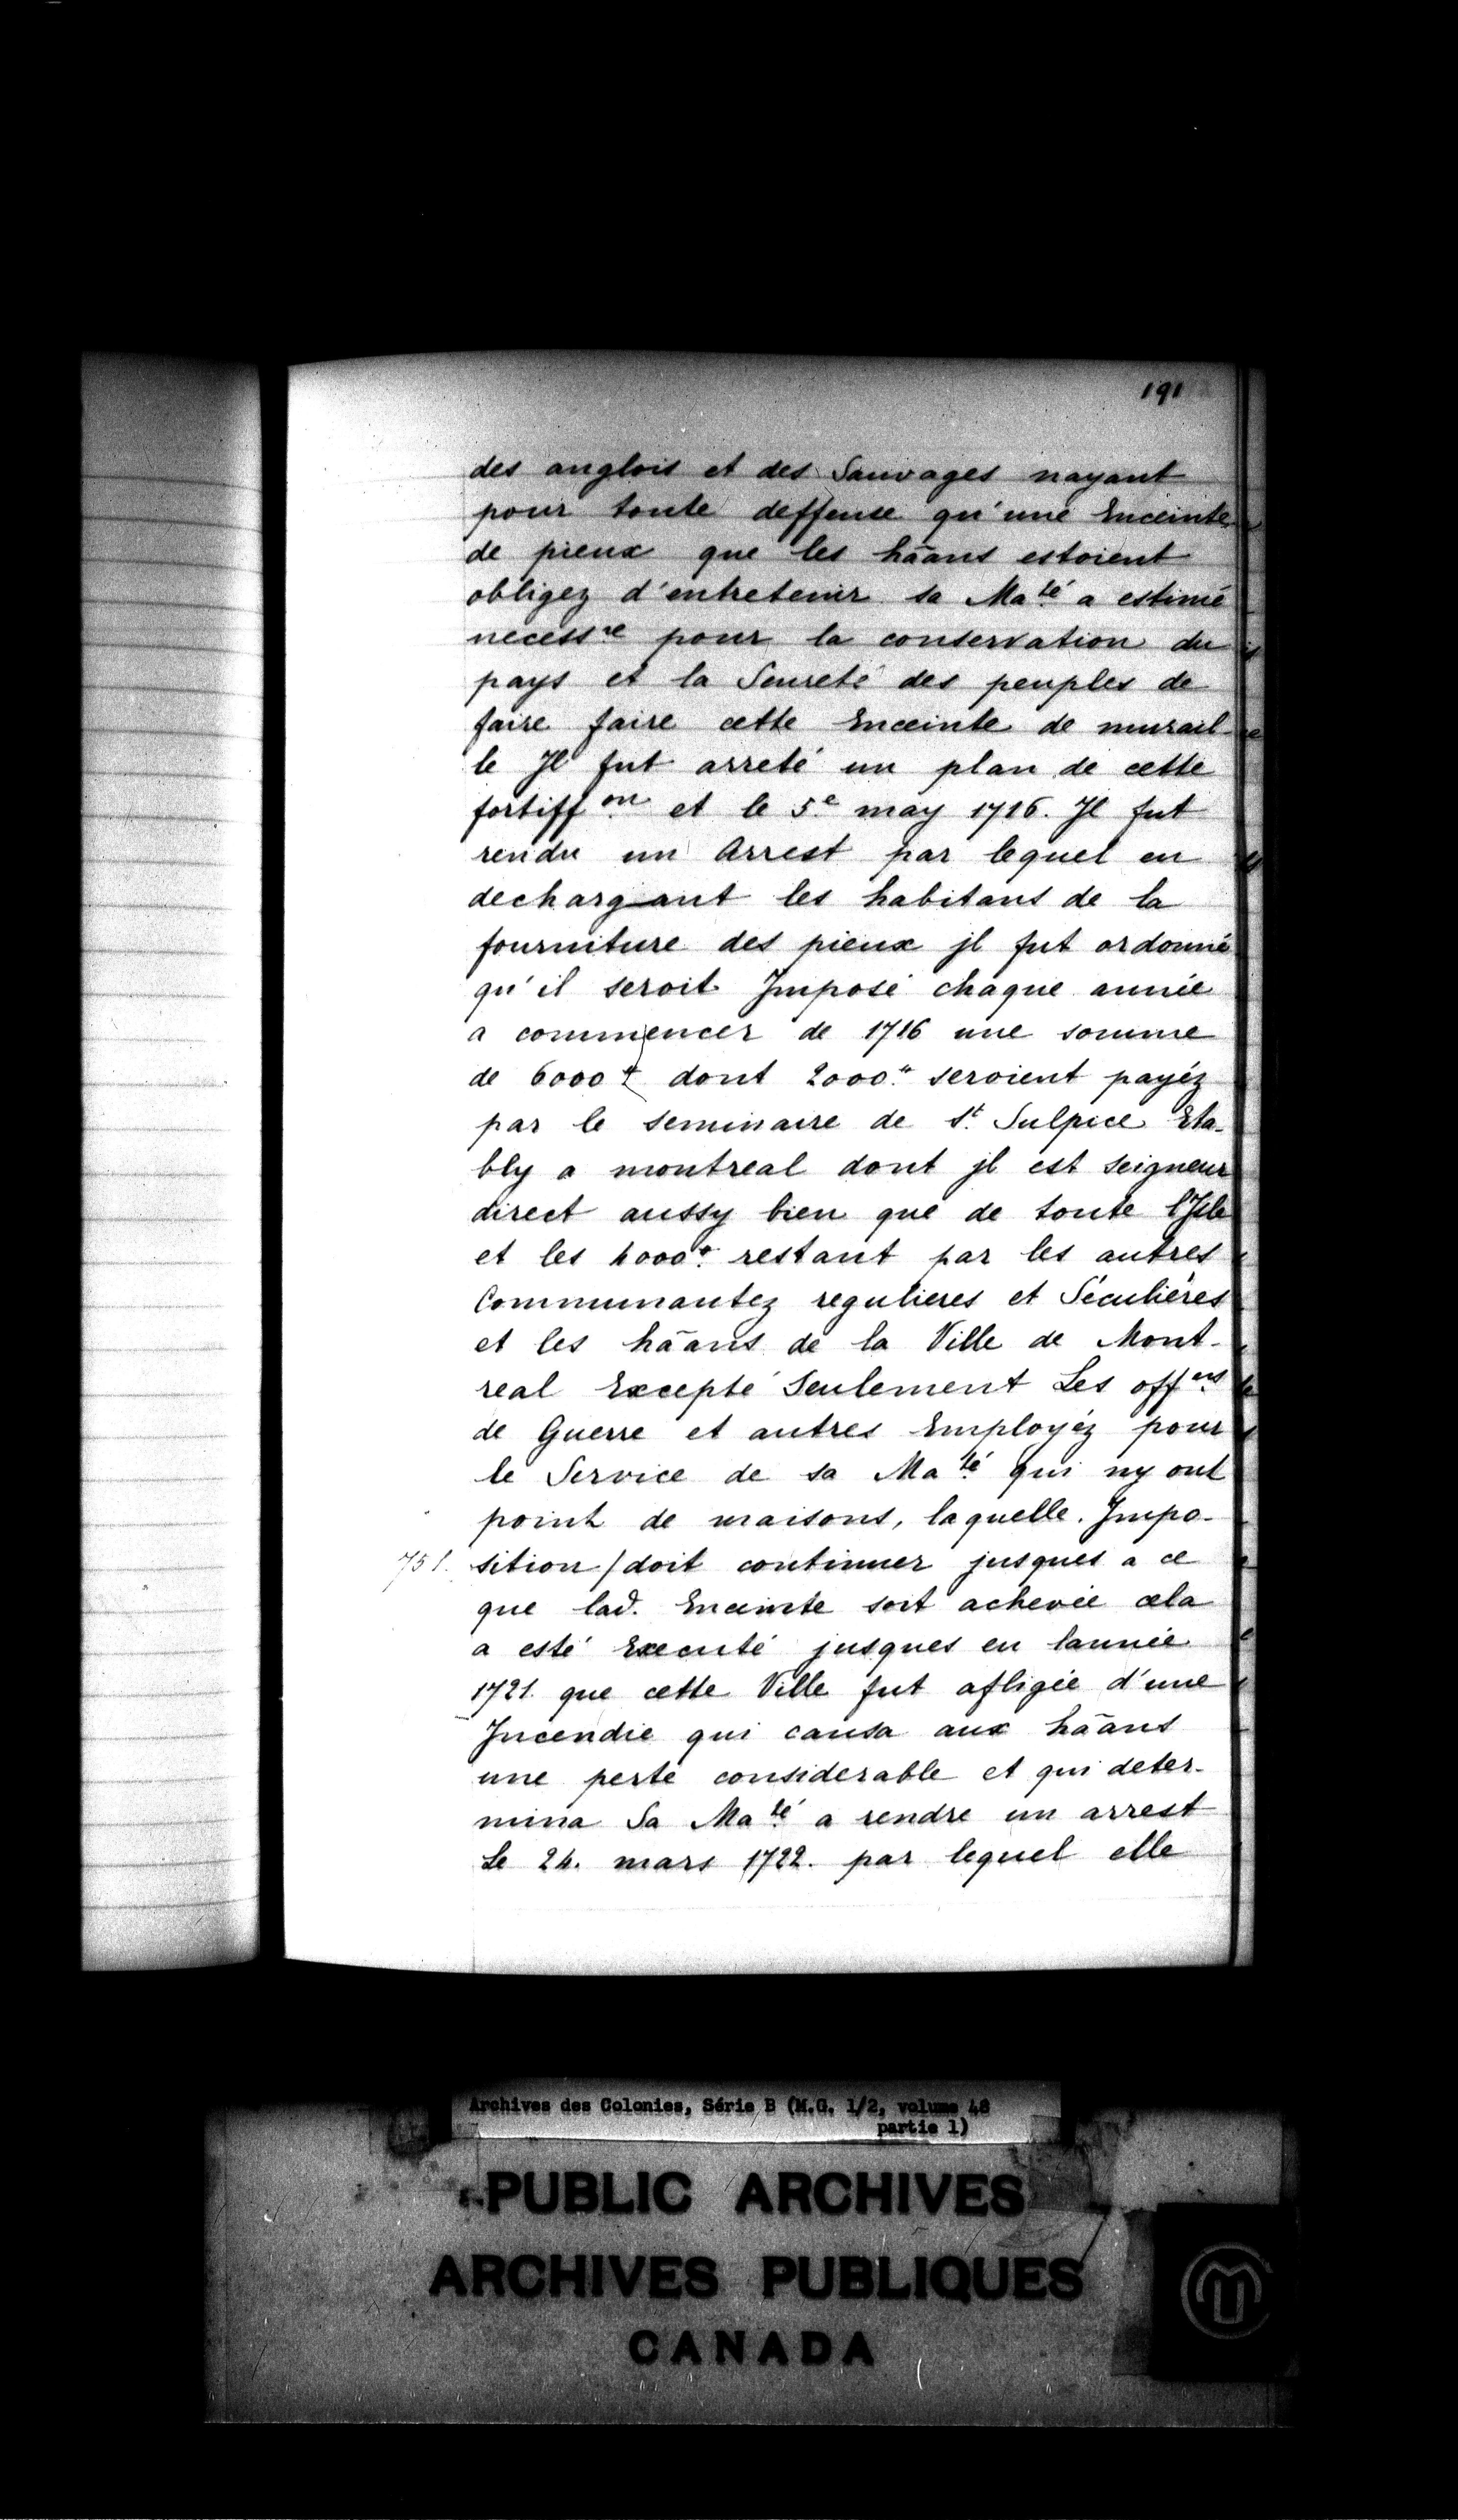 191
des anglois et des Sauvages nayant
pour toute deffense qu'une Enceinte
de pieux que les hãans estoient
obligez d'entretenir sa Ma.té a estimé
necess.re pour la conservation du
pays et la Seureté des peuples de
faire faire cette Enceinte de murail-
le Jl fut arreté un plan de cette
fortiff.on et le 5.e may 1716. Jl fut
rendu un Arrest par lequel en
dechargeant les habitans de la
fourniture des pieux jl fut ordonné
qu'il seroit Jmposé chaque année
a commencer de 1716 une somme
de 6000 ₶ dont 2000.₶ seroient payéz
par le seminaire de S.t Sulpice Eta-
bly a montreal dont jl est seigneur
direct aussy bien que de toute l'Jsle
et les 4000.₶ restant par les autres
Communautez regulieres et Séculiéres
et les hãans de la Ville de Mont-
real Excepté Seulement Les off.ers
de Guerre et autres Employéz pour
le Service de sa Ma.té qui ny ont
point de maisons, laquelle. Jmpo-
751. sition / doit continuer jusques a ce
que lad. Enceinte soit achevée cela
a esté Executé jusques en lannée
1721. que cette Ville fut afligée d'une
Jncendie qui causa aux hãans
une perte considerable et qui deter-
mina Sa Ma.té a rendre un arrest
Le 24. mars 1722. par lequel elle
Archives des Colonies, Série B (M.G. 1/2, volume 48
partie 1)
PUBLIC ARCHIVES
ARCHIVES PUBLIQUES
CANADA